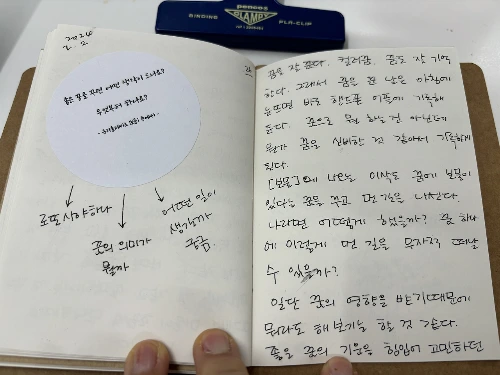 penco®
BINDING
CLAMPY
PLA-CLIP
좋은 꿈을 꾸면 어떤 생각이 드나요?
무엇부터 하나요?
로또 사야 하나
꿈의 의미가
뭘까
어떤 일이
생길까
궁금.
꿈을 잘 꾼다. 컬러풀. 꿈도 잘 기억
한다. 그래서 꿈을 꾼 날은 아침에
눈뜨면 바로 핸드폰 어플에 기록해
둔다. 꿈으로 뭘 하는 건 아닌데
뭔가 꿈을 신비한 것 같아서 기록하게
된다.
[보물]에 나오는 이삭도 꿈에 보물이
있다는 꿈을 꾸고 먼 길을 나선다.
나라면 어떻게 했을까? 꿈 하나
에 이렇게 먼 길을 무작정 떠날
수 있을까?
일단 꿈의 영향을 받기 때문에
뭐라도 해보기는 할 것 같다.
좋은 꿈의 기운을 힘입어 고민하던